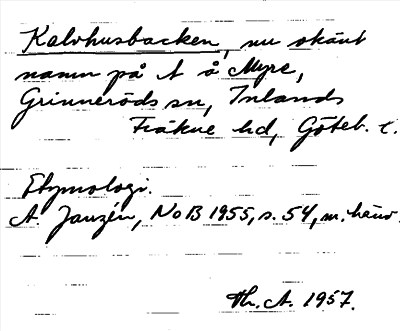 Kalvhusbacken, nu okänt
namn på t å Myre,
Grinneröds sn, Inlands
Fräkne hd, Göteb. l.
Etymologi.
A. Janzén, NoB 1955, s. 54, m. hänv.
Th. A. 1957.